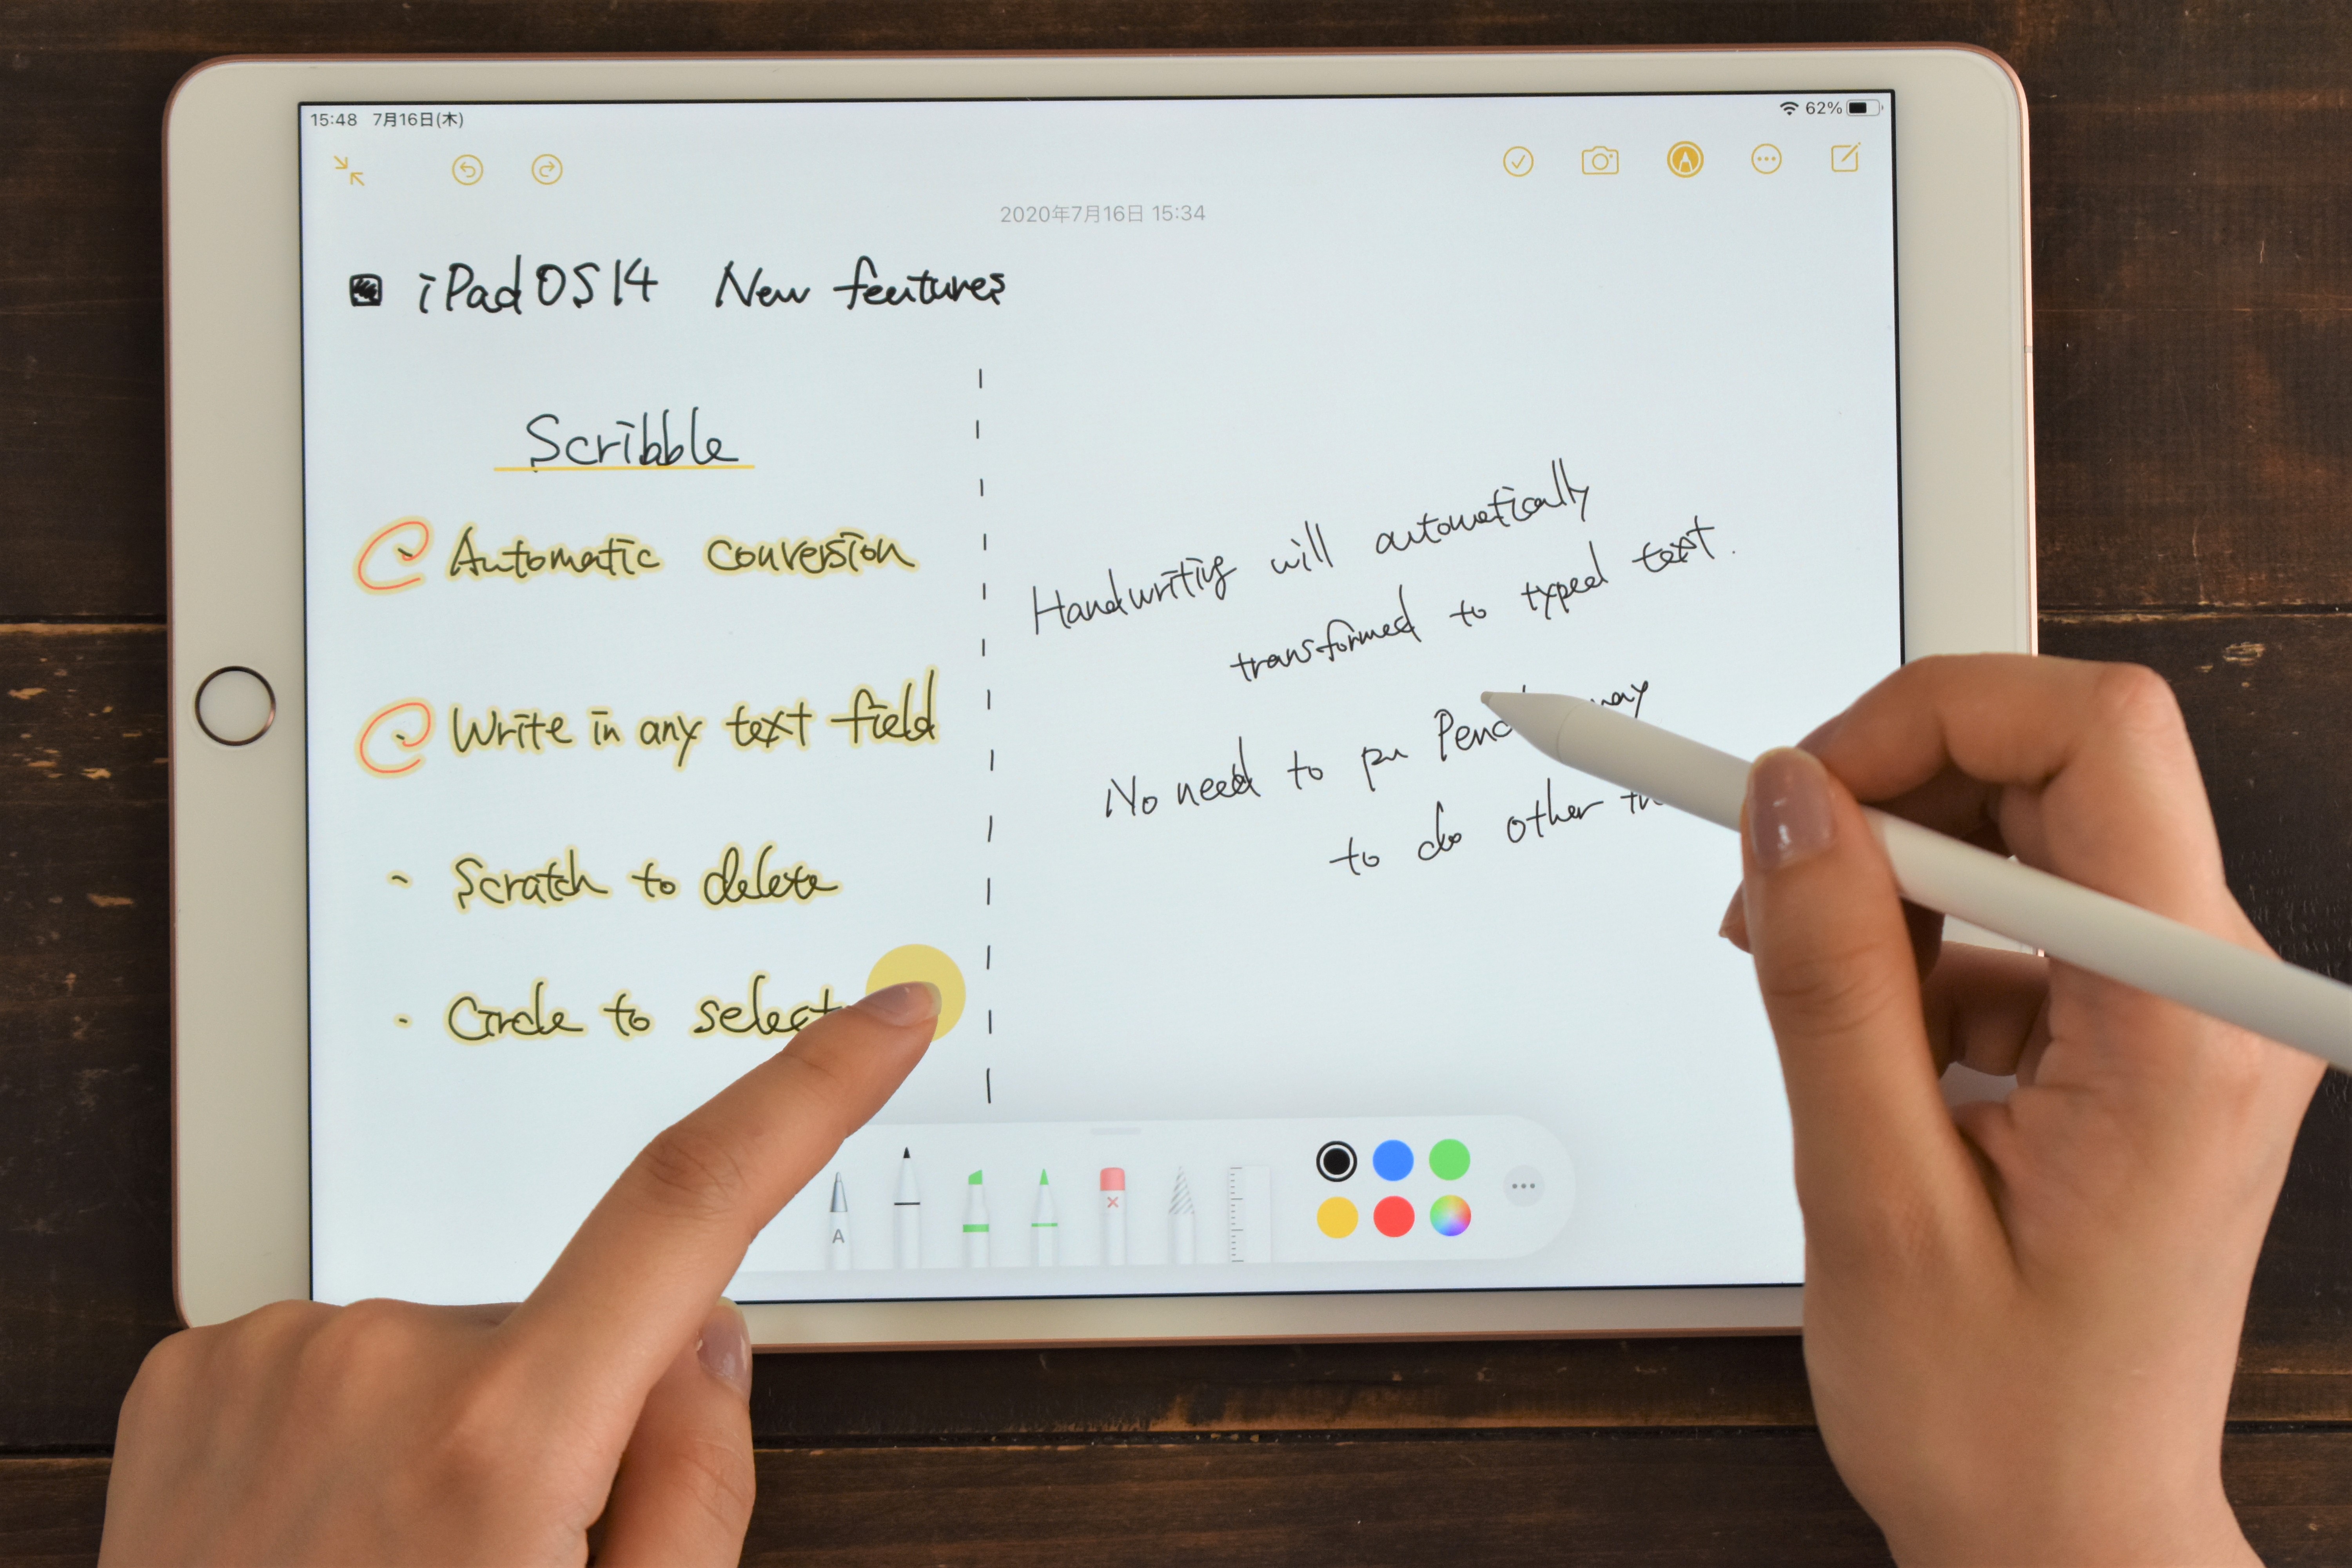 15:48 7月16日(木)
62%
2020年7月16日 15:34
iPadOS14 New features
Scribble
Automatic conversion
Write in any text field
Scratch to delete
Circle to select
Handwritig will automatically
transformed to typed text.
No need to pu Penc way
to do other th
A